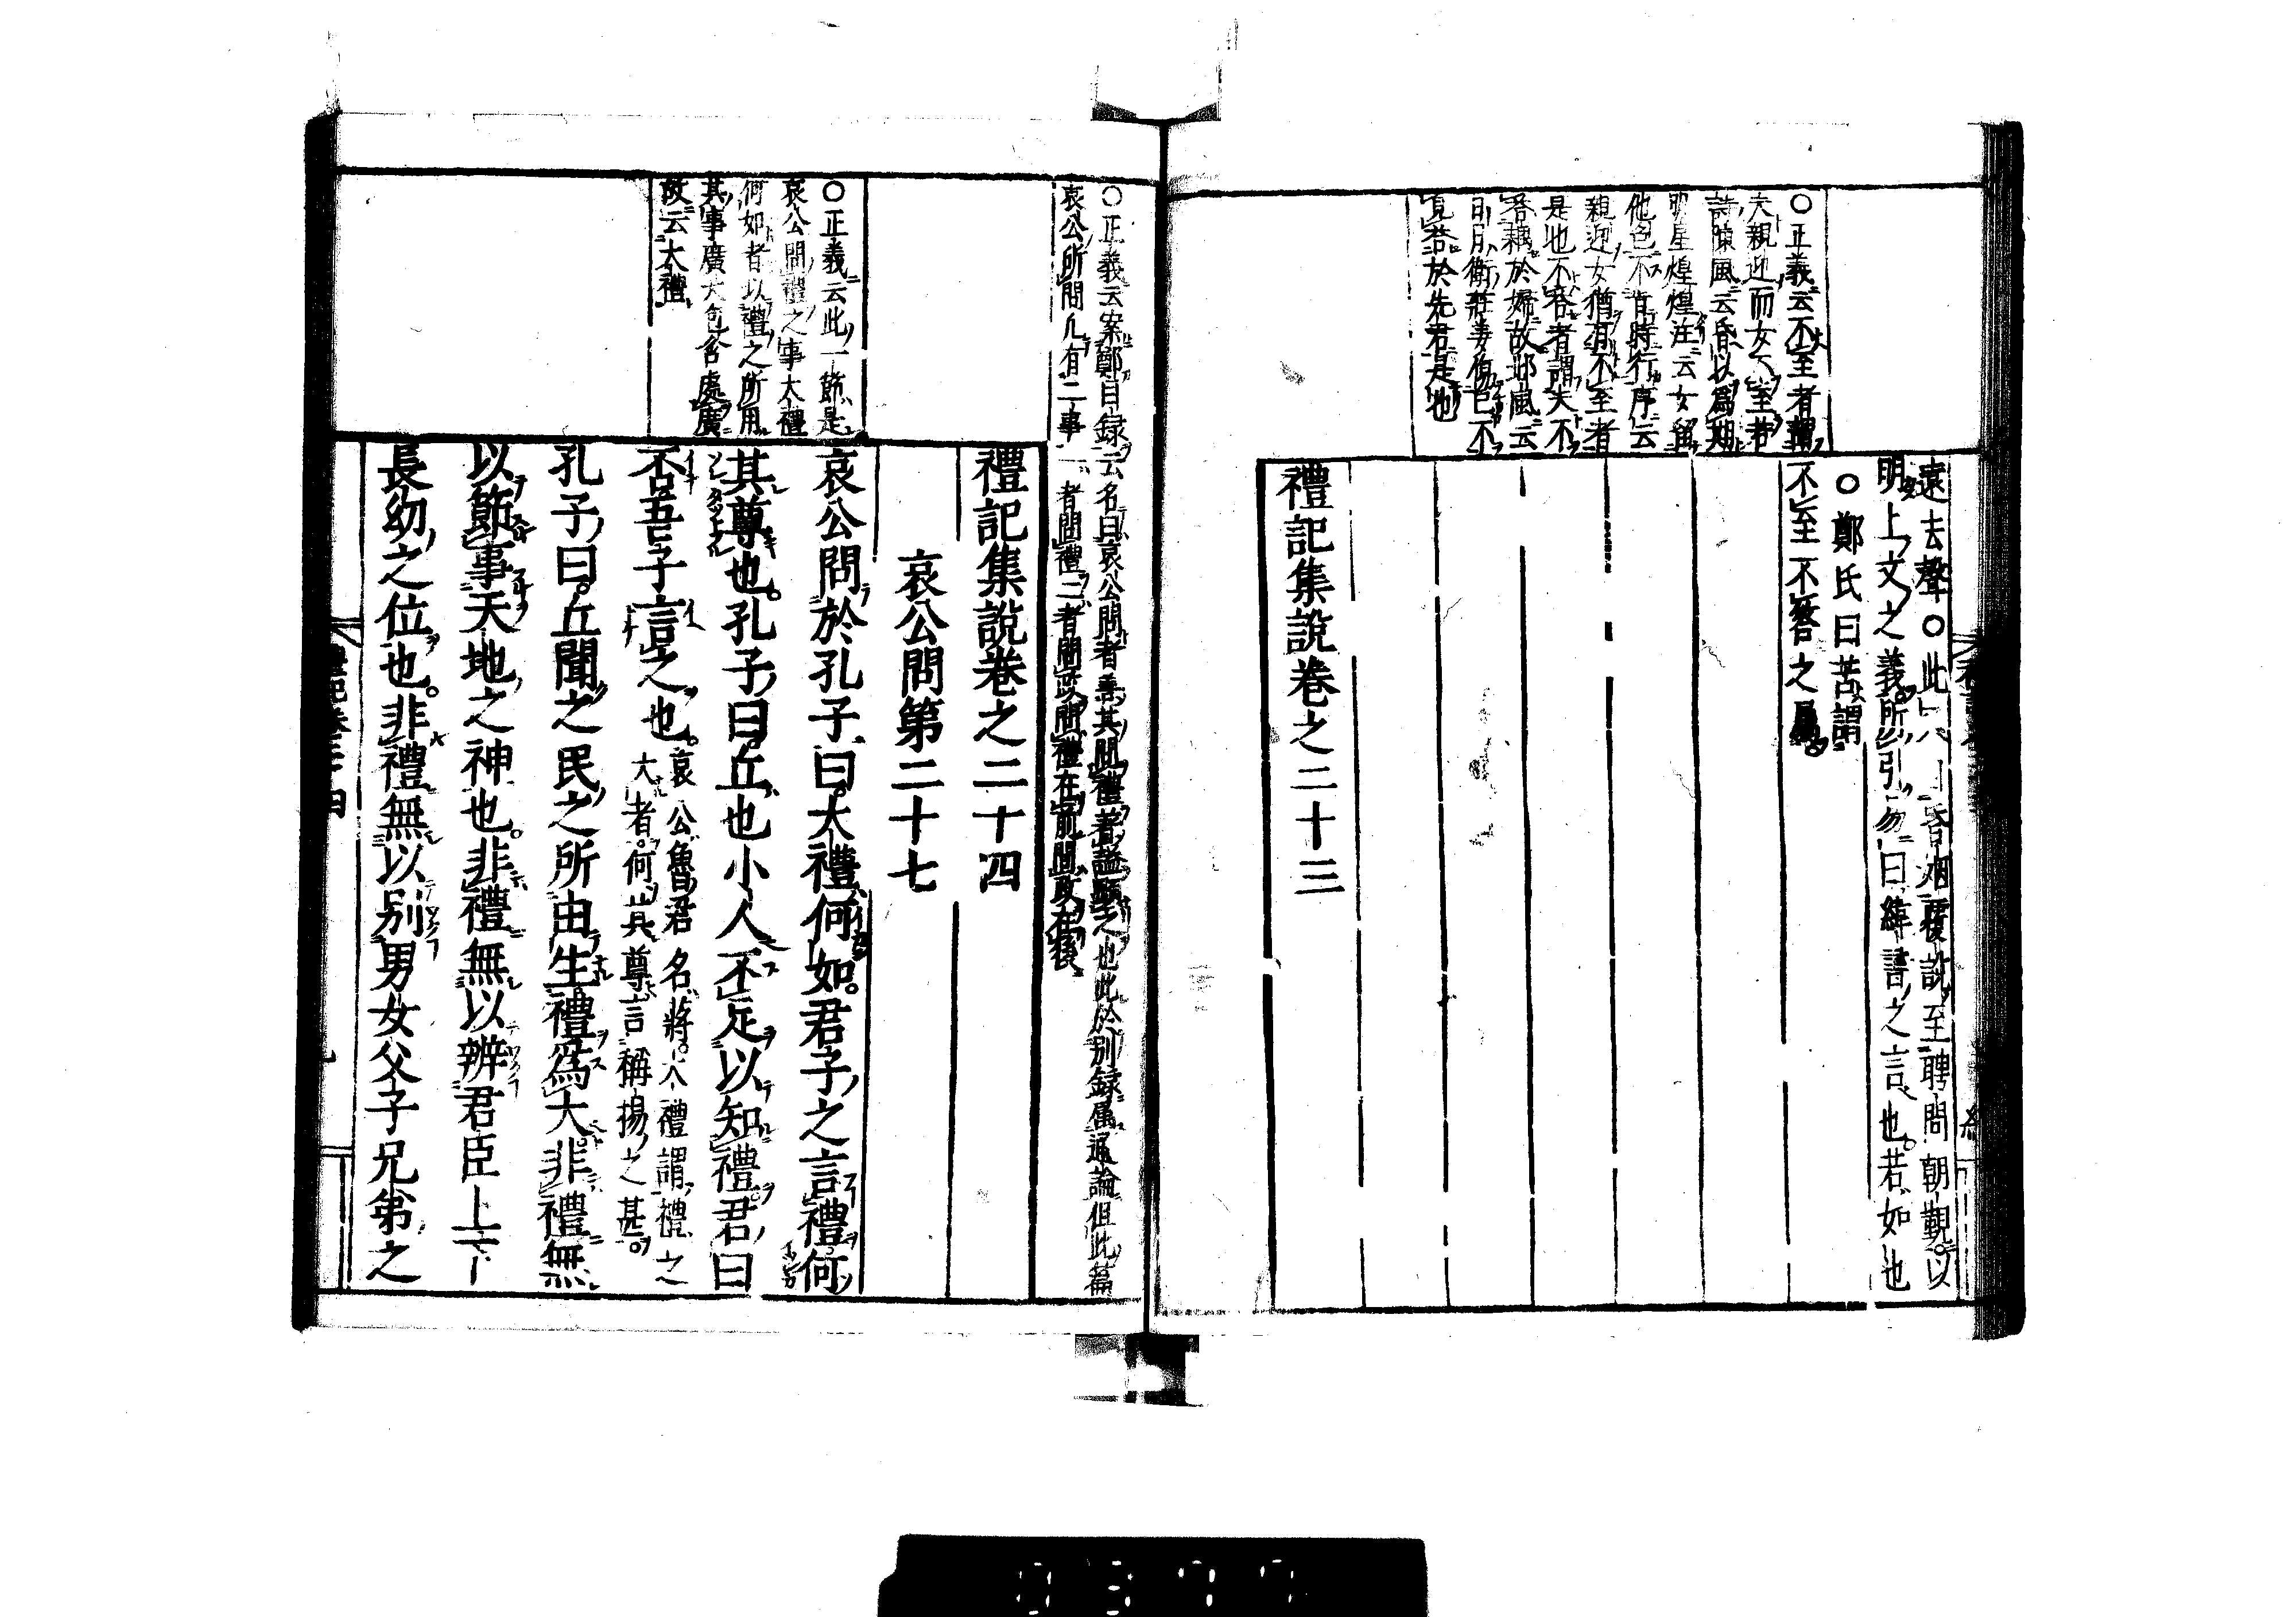 ○正義云不至者謂
夫親迎而女不至若
詩陳風云昏以爲期
明星煌煌注云女留
他色不肯時行序云
親迎女猶有不至者
是也不答者謂夫不
答耦於婦故邶風云
日月衛莊姜傷已不
見荅於先君是也
遠去聲○此 昏姻覆說至聘問朝覲以
明上文之義所引易曰緯書之言也若如也
○鄭氏曰苦謂
不至不答之屬
禮記集說卷之二十三
○正義云案鄭目録云名曰哀公問者善其問禮著謚顯之也此於別録属通論但此篇
哀公所問凡有二事一者問禮二者問政問禮在前問政在後
○正義云此一節是
哀公問禮之事大禮
何如者以禮之所用
其事廣大包含處廣
故云大禮
禮記集說卷之二十四
哀公問第二十七
哀公問於孔子曰大禮何如君子之言禮何
其尊也孔子曰丘也小人不足以知禮君曰
否吾子言之也哀公魯君名將大禮謂禮之
大者何其尊言稱揚之甚
孔子曰丘聞之民之所由生禮爲大非禮無
以節事天地之神也非禮無以辨君臣上下
長幼之位也非禮無以别男女父子兄弟之
禮記卷二十四